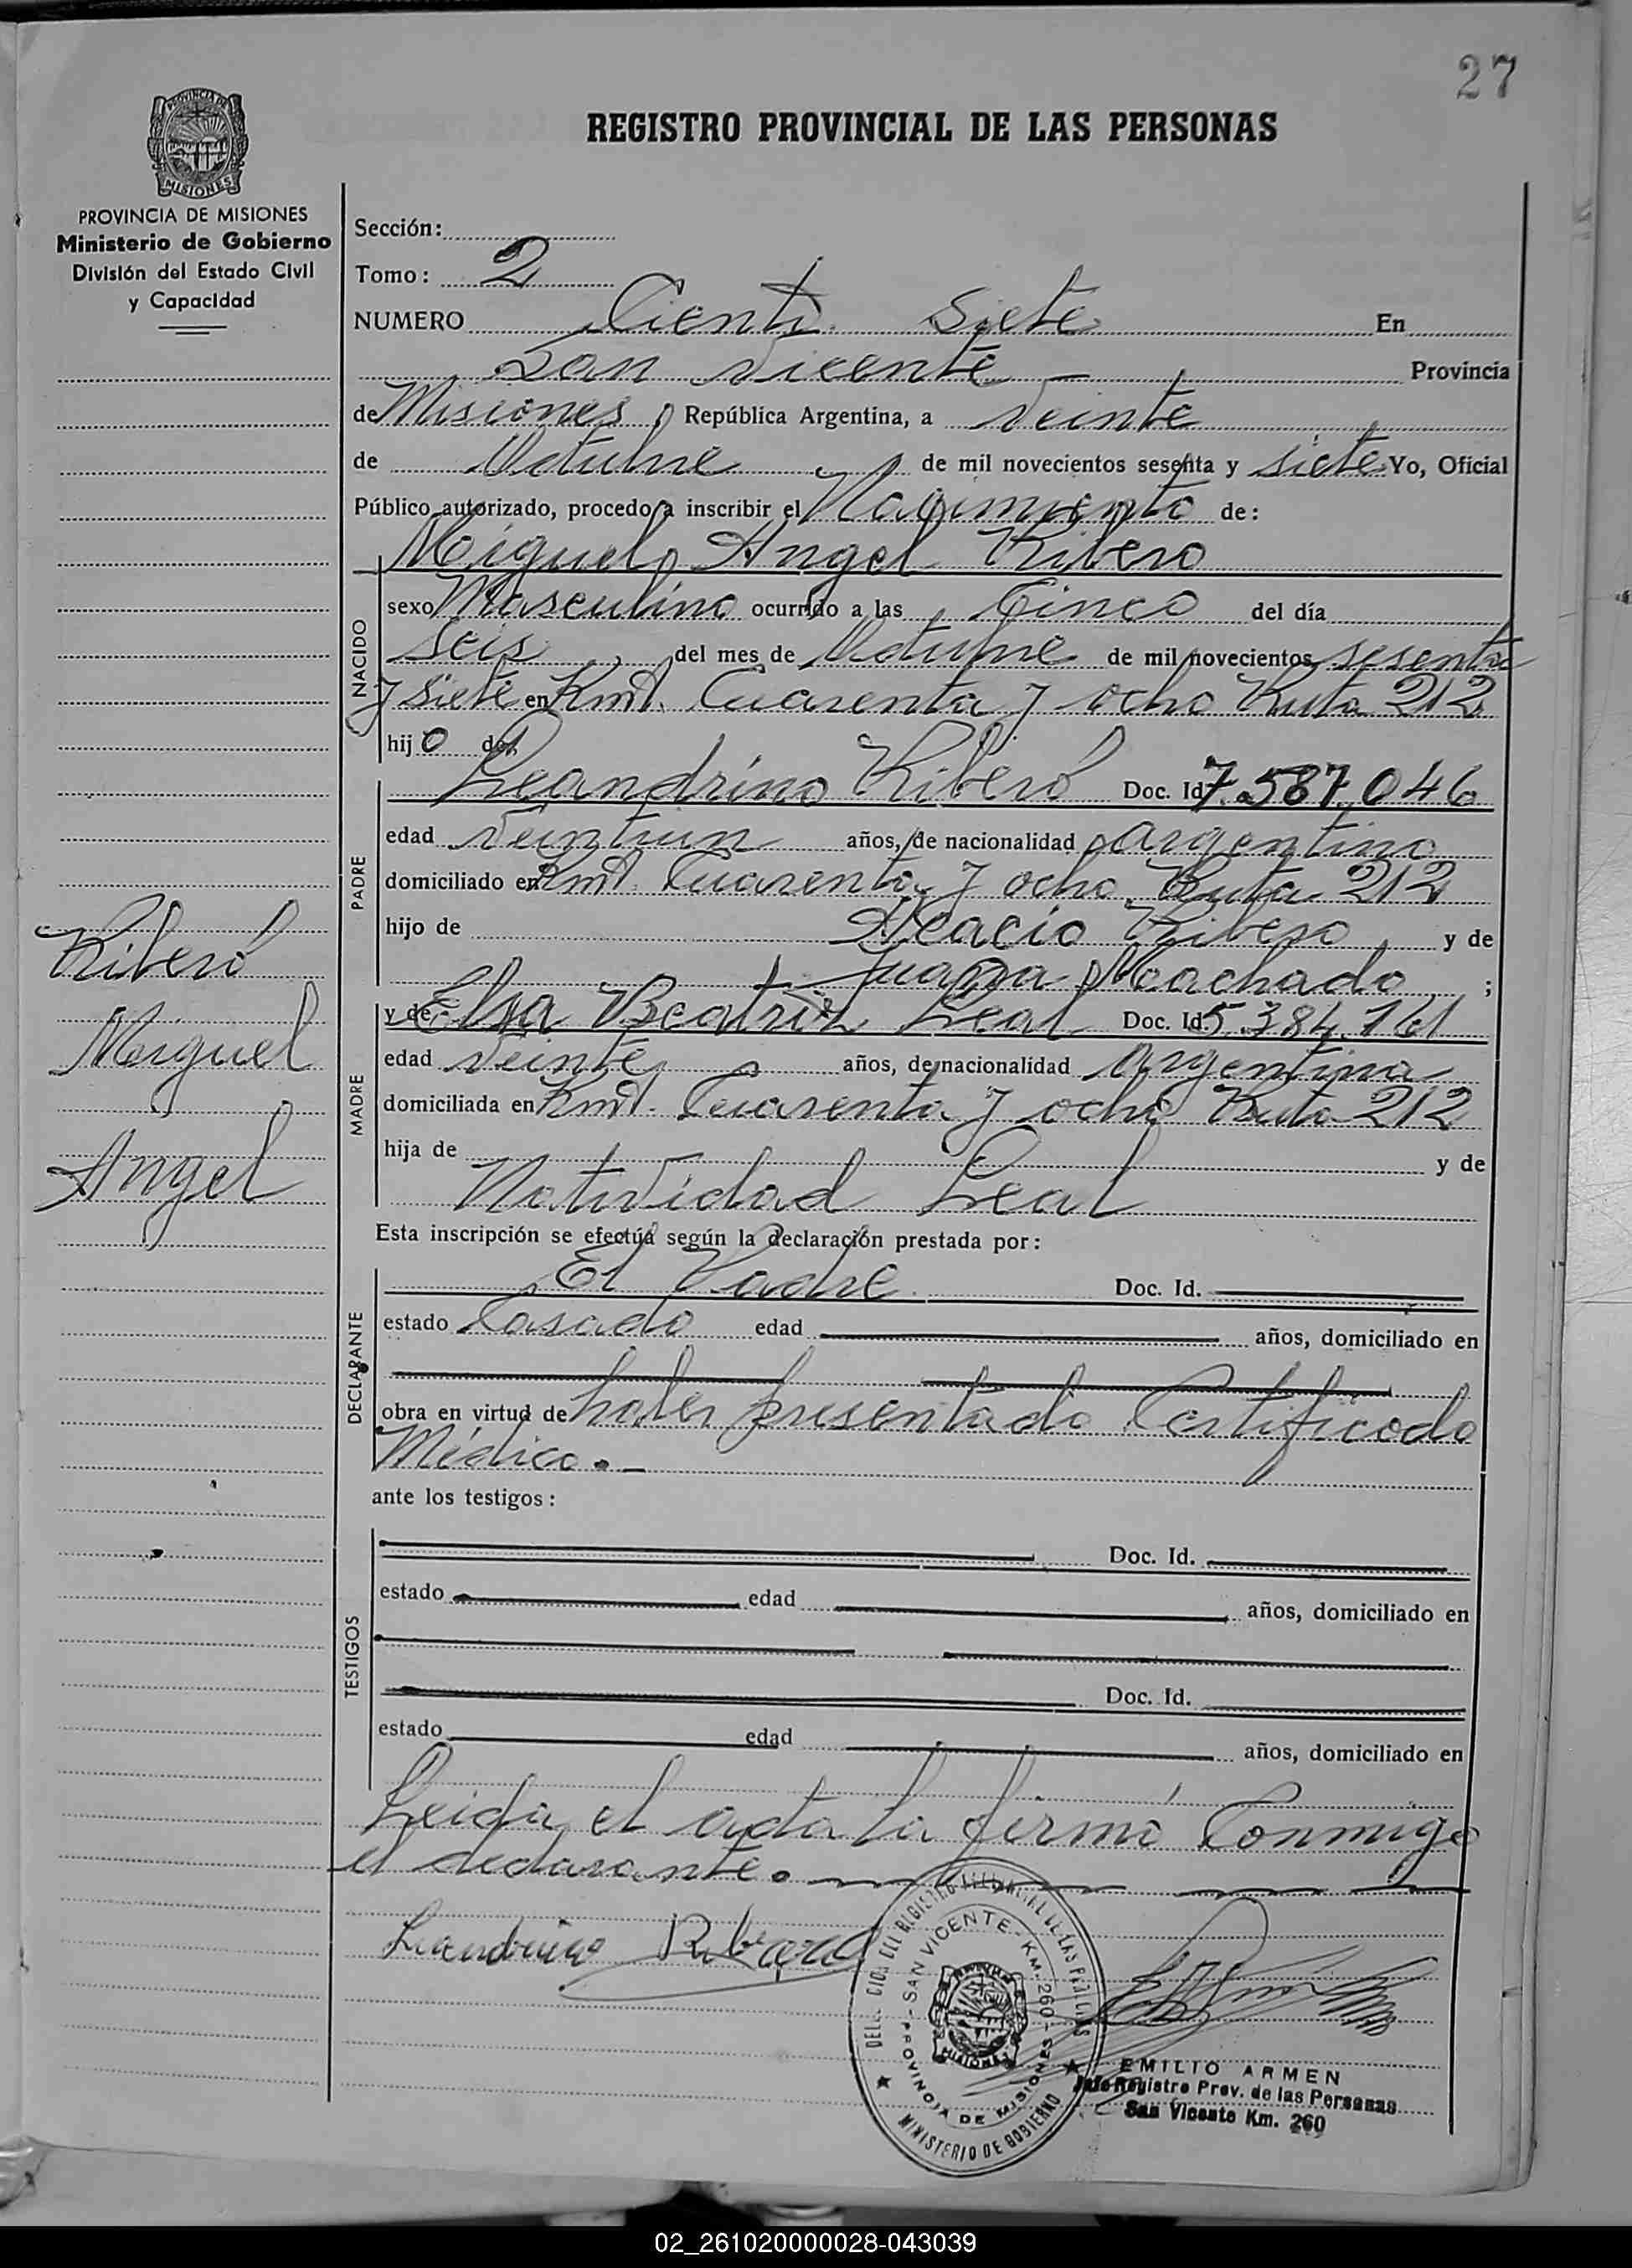 27
REGISTRO PROVINCIAL DE LAS PERSONAS
PROVINCIA DE MISIONES
PROVINCIA DE MISIONES
Ministerio de Gobierno
División del Estado Civil
y Capacidad
Ribero
Miguel
Angel
Sección:
Tomo: 2
NUMERO Ciento Siete En
San Vicente — Provincia
de Misiones, República Argentina, a veinte
de Octubre de mil novecientos sesenta y siete Yo, Oficial
Público autorizado, procedo a inscribir el Nacimiento de:
Miguel Angel Ribero
NACIDO
sexo Masculino ocurrido a las Cinco del día
seis del mes de Octubre de mil novecientos sesenta
y siete en Kmt. Cuarenta y ocho Ruta 212
hijo de:
PADRE
Leandrino Ribero Doc. Id 7.587.046
edad veintiun años, de nacionalidad argentino
domiciliado en Kmt. Cuarenta y ocho Ruta 212
hijo de Acacio Ribero y de
Juana Machado ;
MADRE
y de Elsa Beatriz Leal Doc. Id 5.384.761
edad veinte años, de nacionalidad argentina
domiciliada en Kmt. Cuarenta y ocho Ruta 212
hija de y de
Natividad Leal
Esta inscripción se efectúa según la declaración prestada por:
DECLARANTE
El Padre Doc. Id.
estado Casado edad años, domiciliado en
obra en virtud de haber presentado Certificado
Médico.-
ante los testigos:
TESTIGOS
Doc. Id.
estado edad años, domiciliado en
Doc. Id.
estado edad años, domiciliado en
Leida el acta la firmó Conmigo
el declarante.
Leandrino Ribero
DELEGACION DEL REGISTRO PROVINCIAL DE LAS PERSONAS
SAN VICENTE - KM. 260 - PROVINCIA DE MISIONES
MISIONES
MINISTERIO DE GOBIERNO
EMILIO ARMEN
Jefe Registro Prov. de las Personas
San Vicente Km. 260
02_261020000028-043039